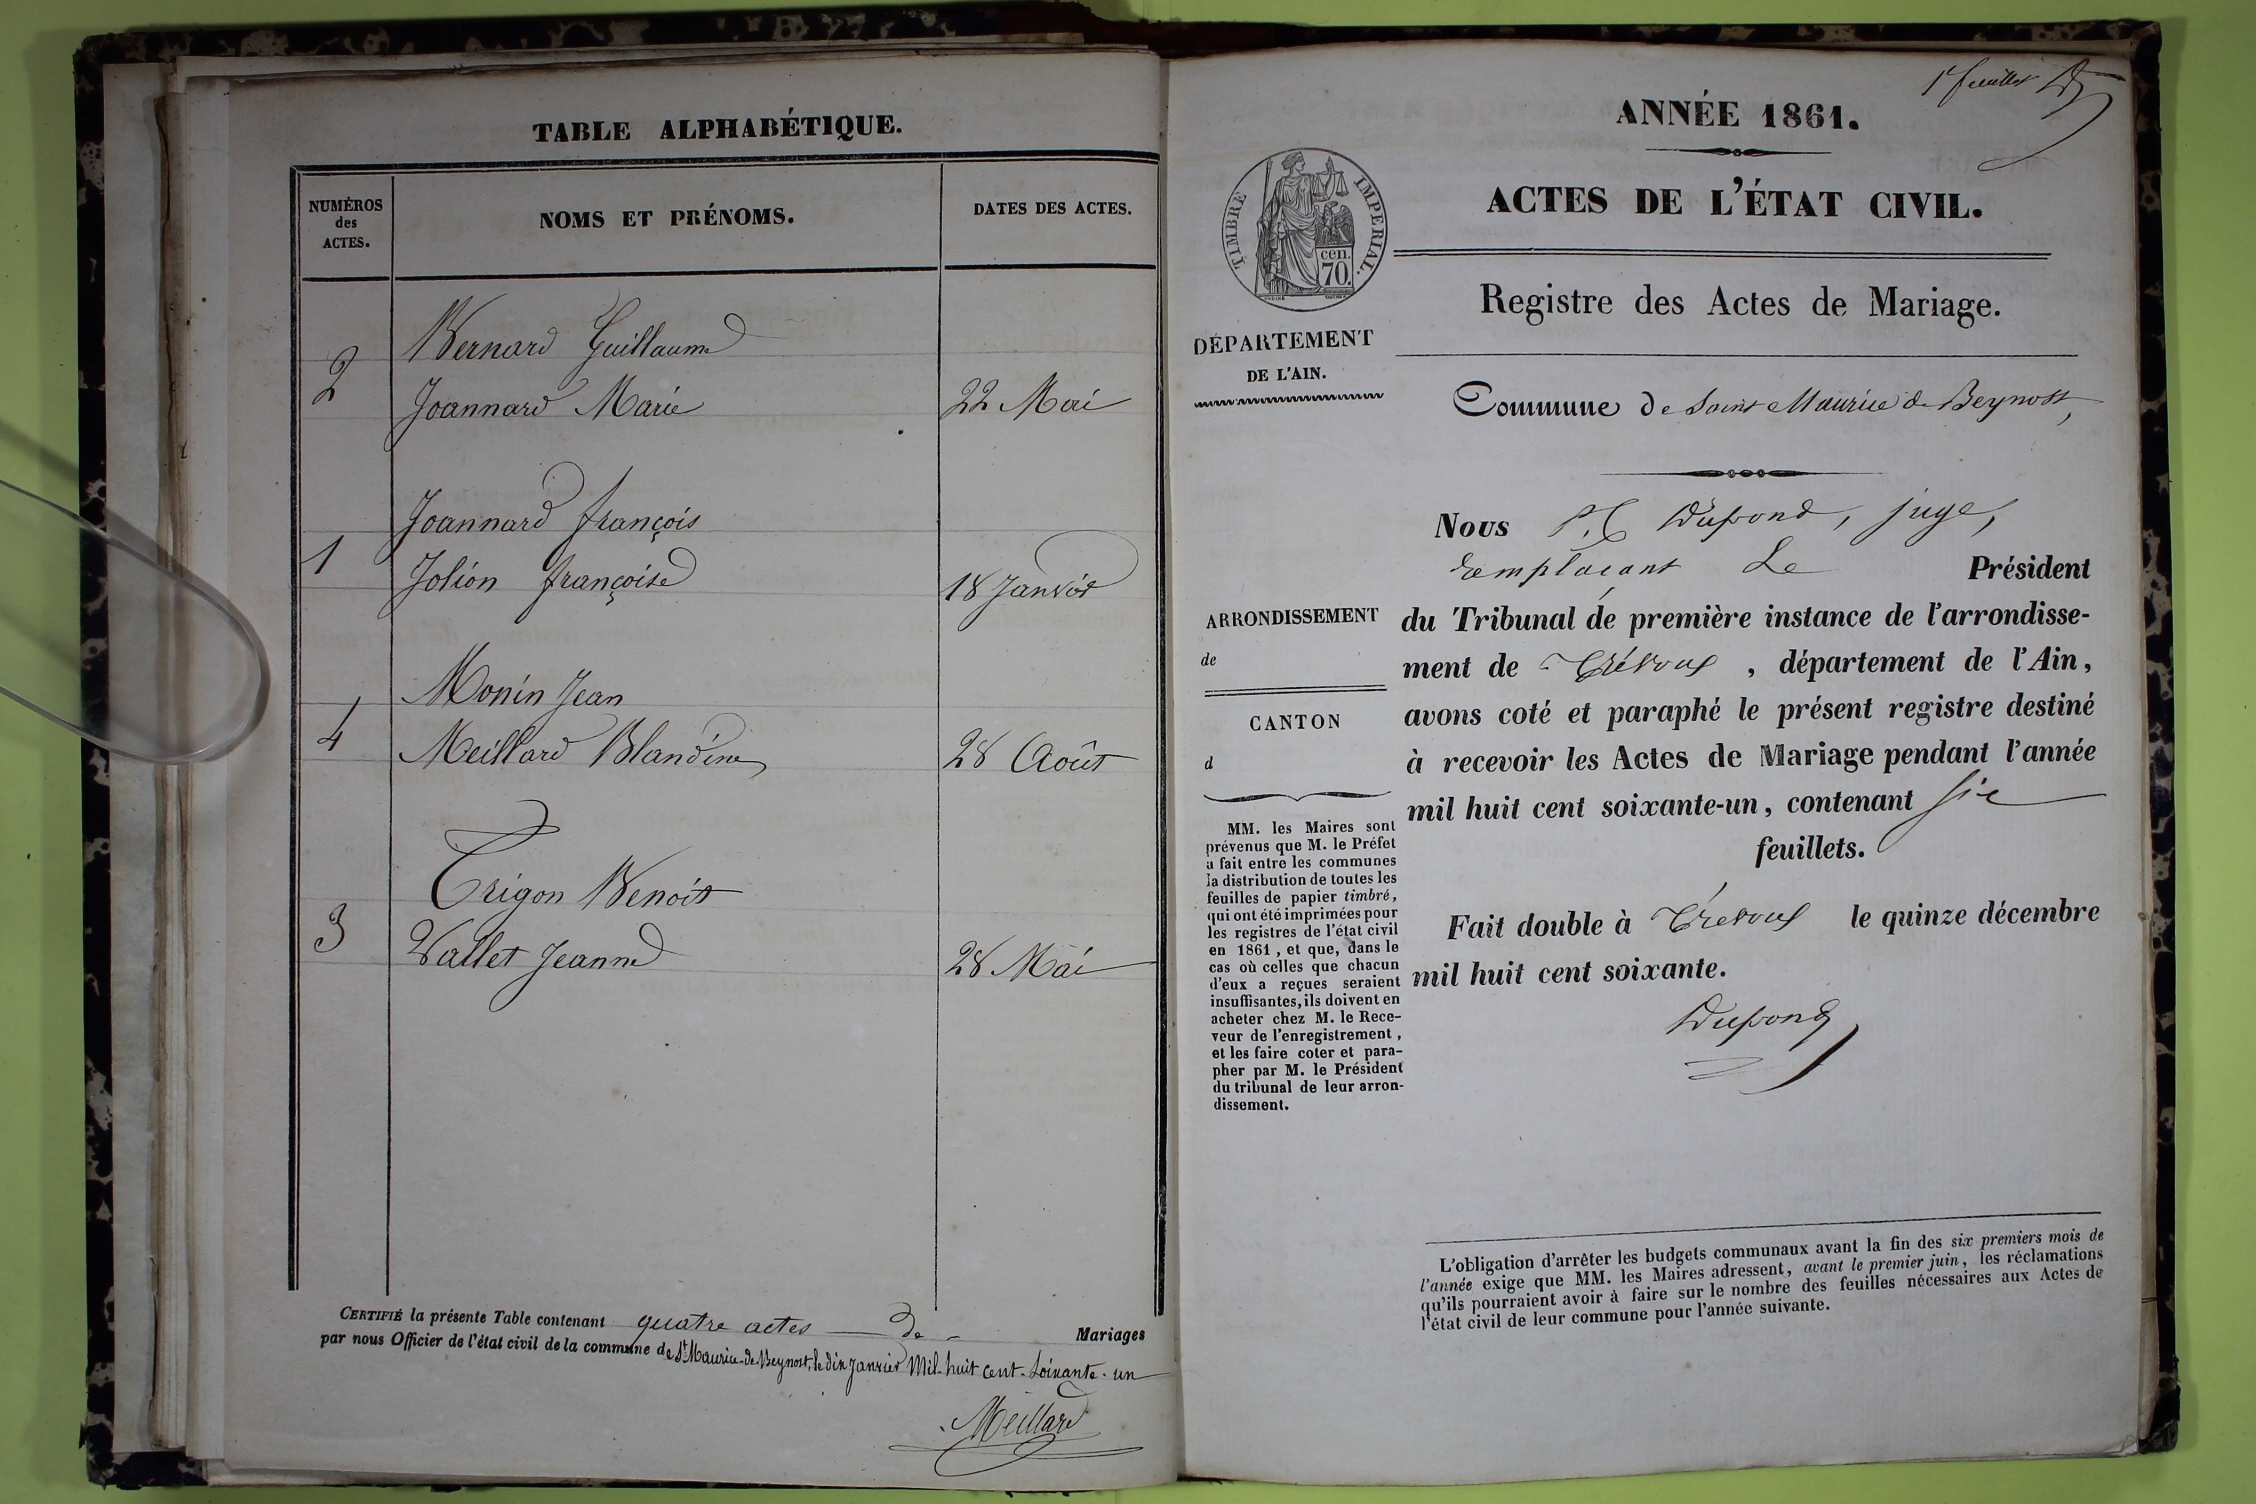 TABLE ALPHABÉTIQUE.
NUMÉROS
des
ACTES.
NOMS ET PRÉNOMS.
DATES DES ACTES.
Bernard Guillaume
2 Joannard Marie 22 Mai
Joannard françois
1 Jolion françoise 18 Janvier
Monin Jean
4 Meillard Blandine 28 Août
Trigon Benoit
3 Vallet Jeanne 28 Mai
CERTIFIÉ la présente Table contenant quatre actes de Mariages
par nous Officier de l'état civil de la commune de St Maurice-de-Beynost, le dix Janvier Mil-huit cent-soixante-un
Meillard
1er feuillet
ANNÉE 1861.
ACTES DE L'ÉTAT CIVIL.
TIMBRE IMPÉRIAL.
cen.
70.
Registre des Actes de Mariage.
DÉPARTEMENT
DE L'AIN.
Commune de Saint Maurice de Beynost,
Nous Dupond, juge,
remplaçant Le Président
du Tribunal de première instance de l'arrondisse-
ment de Trévoux, département de l'Ain,
avons coté et paraphé le présent registre destiné
à recevoir les Actes de Mariage pendant l'année
mil huit cent soixante-un, contenant six
feuillets.
Fait double à Trévoux le quinze décembre
mil huit cent soixante.
Dupond
ARRONDISSEMENT
de
CANTON
d
MM. les Maires sont
prévenus que M. le Préfet
a fait entre les communes
la distribution de toutes les
feuilles de papier timbré,
qui ont été imprimées pour
les registres de l'état civil
en 1861, et que, dans le
cas où celles que chacun
d'eux a reçues seraient
insuffisantes, ils doivent en
acheter chez M. le Rece-
veur de l'enregistrement,
et les faire coter et para-
pher par M. le Président
du tribunal de leur arron-
dissement.
L'obligation d'arrêter les budgets communaux avant la fin des six premiers mois de
l'année exige que MM. les Maires adressent, avant le premier juin, les réclamations
qu'ils pourraient avoir à faire sur le nombre des feuilles nécessaires aux Actes de
l'état civil de leur commune pour l'année suivante.